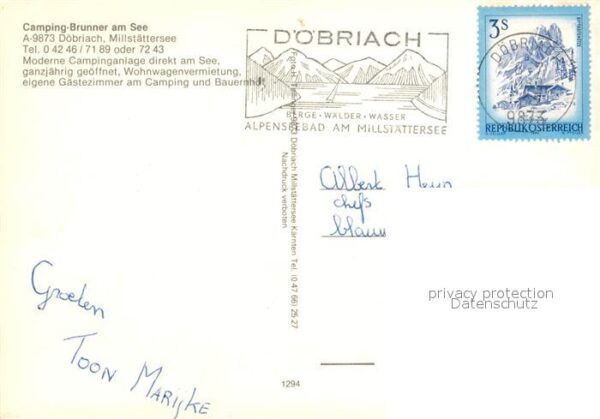 Camping-Brunner am See
A-9873 Döbriach, Millstättersee
Tel. 0 42 46 / 71 89 oder 72 43
Moderne Campinganlage direkt am See,
ganzjährig geöffnet, Wohnwagenvermietung,
eigene Gästezimmer am Camping und Bauernhof
DÖBRIACH
BERGE · WÄLDER · WASSER
ALPENSEEBAD AM MILLSTÄTTERSEE
3 S
REPUBLIK ÖSTERREICH
9873
Döbriach Millstättersee Kärnten Tel. (0 47 66) 25 27
Nachdruck verboten
Albert
chefs
blauw
Groeten
TOON MARIJKE
privacy protection
Datenschutz
1294